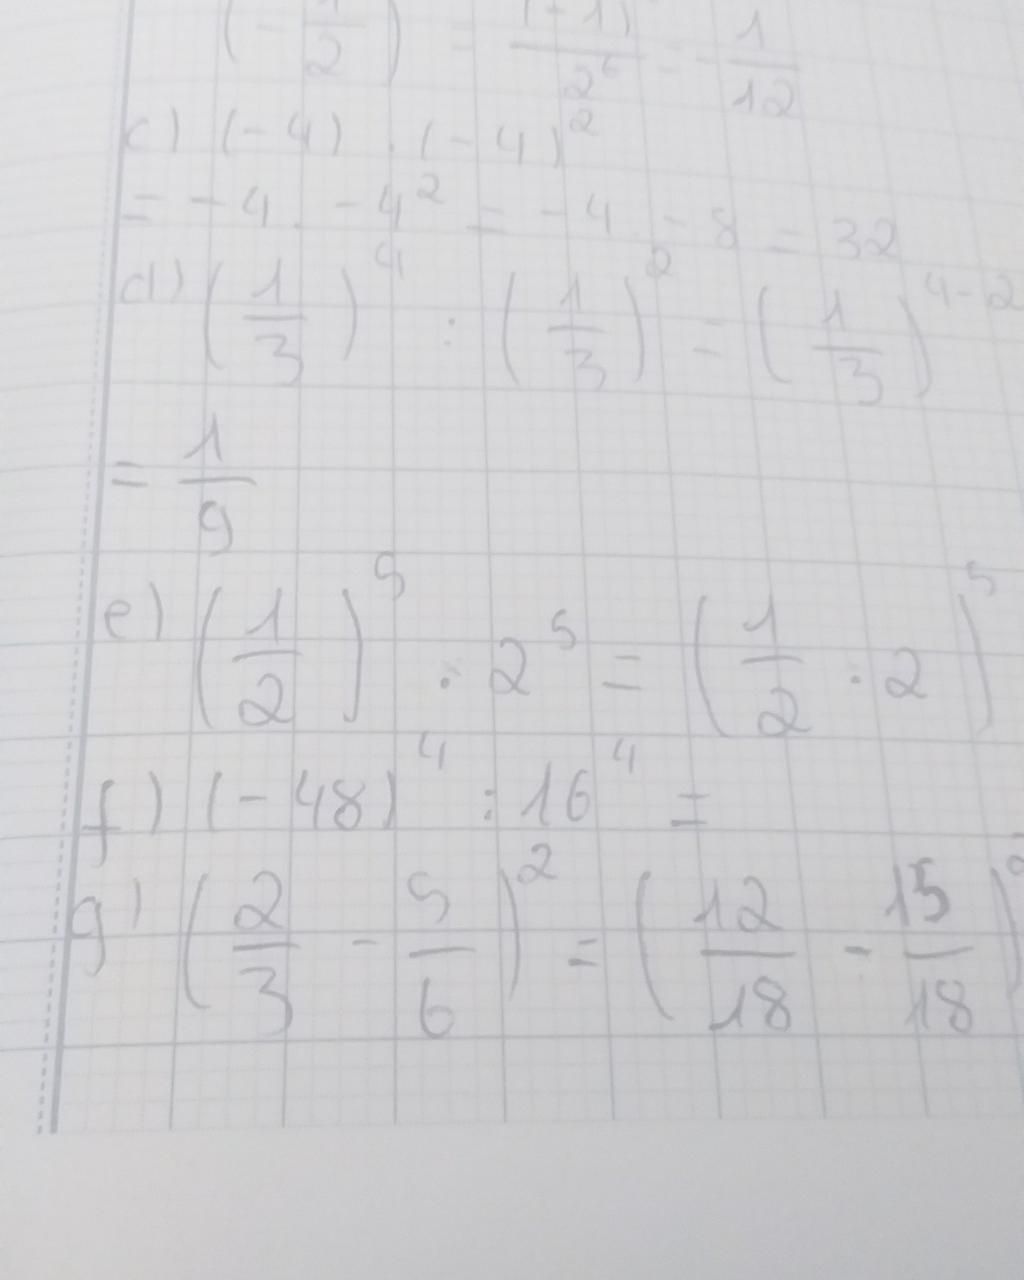 (-1/2) = (-1)/2⁶ = -1/12
c) (-4) · (-4)²
= -4 · -4² = -4 · -8 = 32
d) (1/3)⁴ : (1/3)² = (1/3)⁴⁻²
= 1/9
e) (1/2)⁵ · 2⁵ = (1/2 · 2)⁵
f) (-48)⁴ : 16⁴ =
g) (2/3 - 5/6)² = (12/18 - 15/18)²